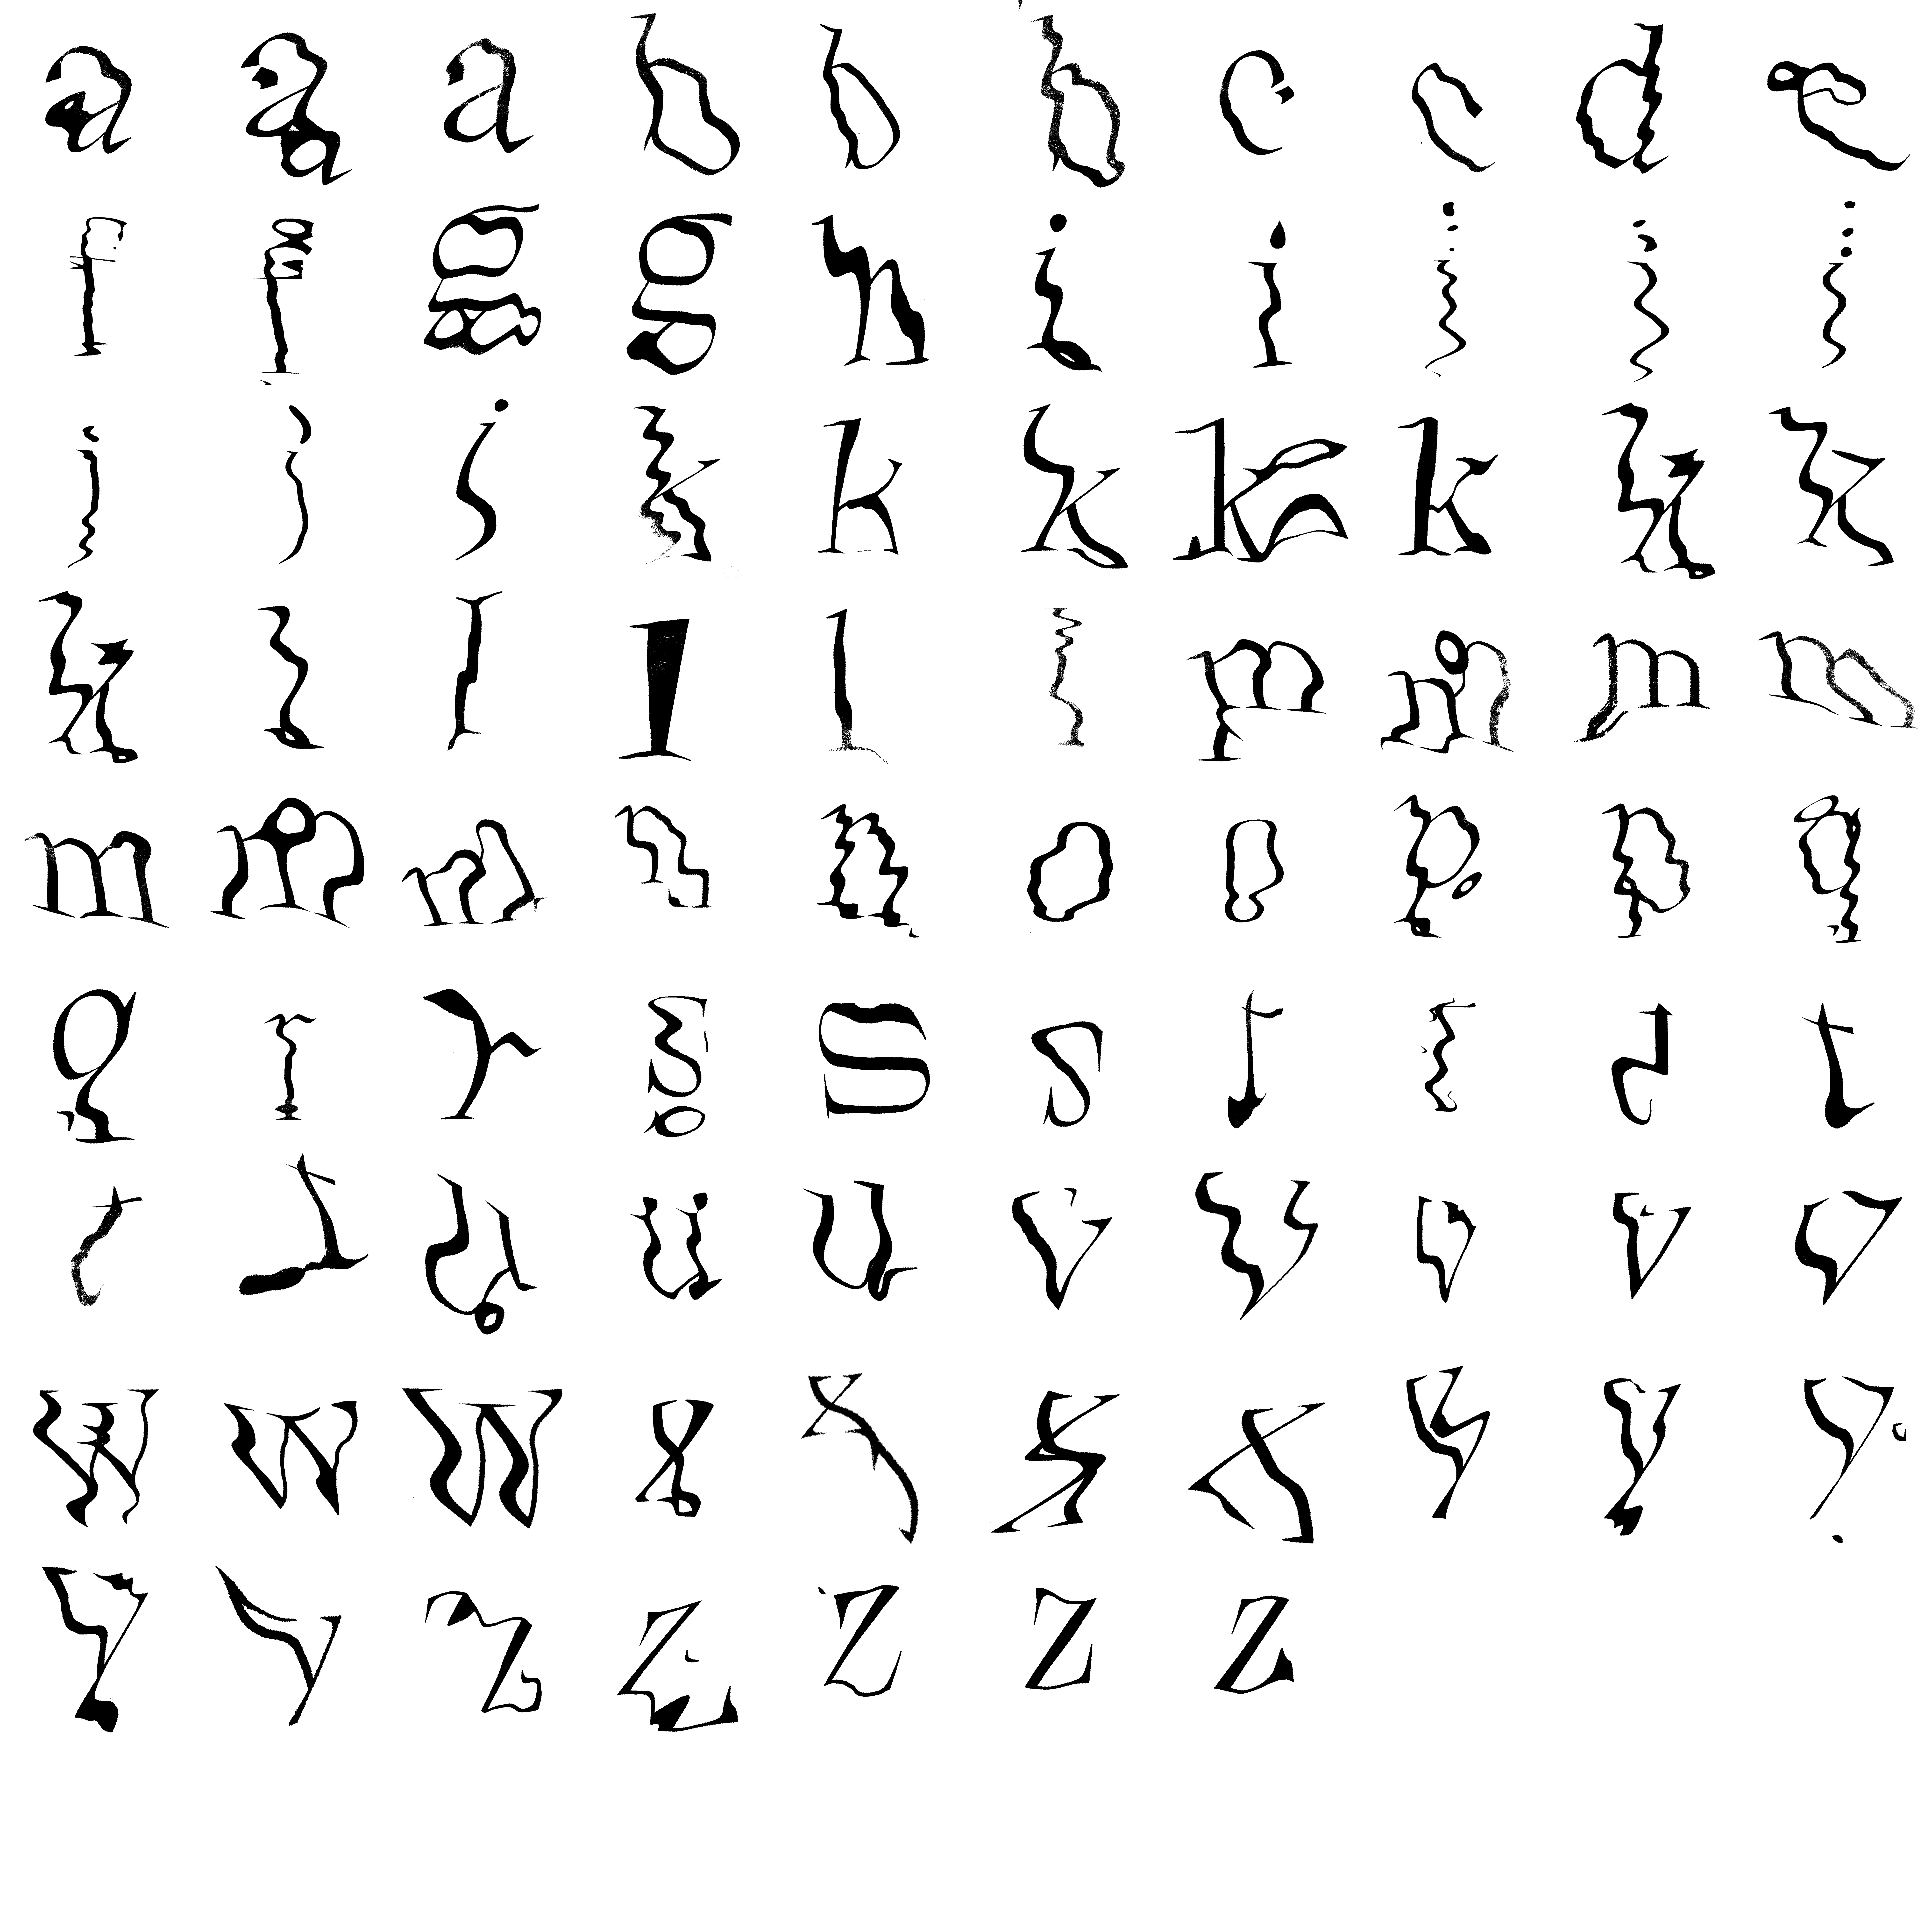 a a a b b b c c d e
f f g g h i i i i i
j j j k k k k k k k
k l l l l l m m m m
m m m n n o o p p q
q r r s s s t t t t
t t u u u v v v v v
w w w x x x x y y y
y y z z z z z